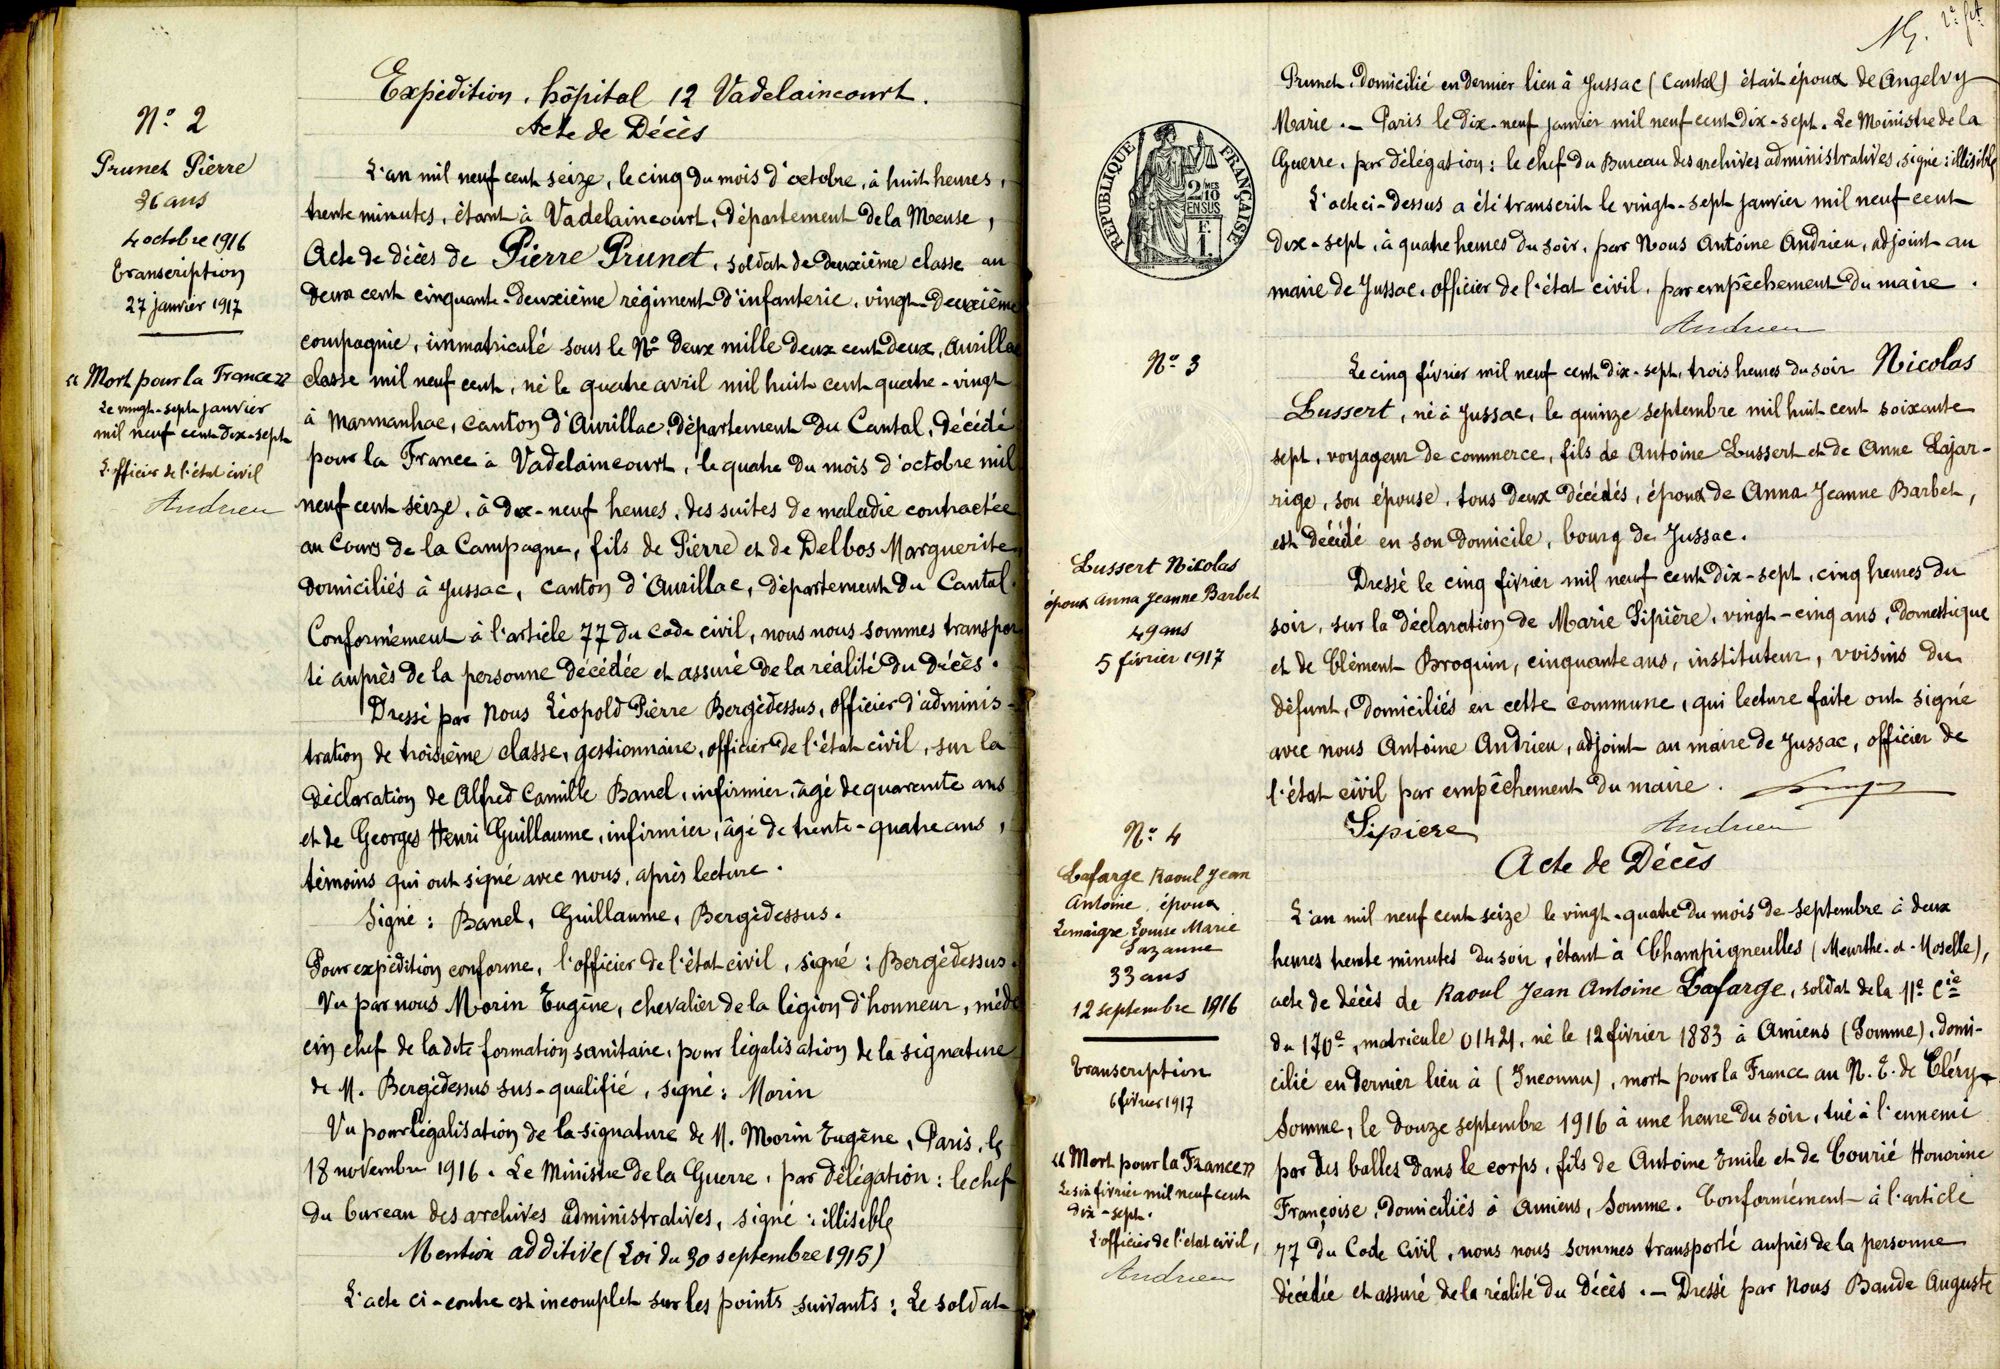 Expédition, hôpital 12 Vadelaincourt.
Acte de Décès
N° 2
Prunet Pierre
36 ans
4 octobre 1916
Transcription
27 janvier 1917
« Mort pour la France »
Le vingt-sept janvier
mil neuf cent dix-sept
L'officier de l'état civil
Andrieu
L'an mil neuf cent seize, le cinq du mois d'octobre, à huit heures,
trente minutes, étant à Vadelaincourt, département de la Meuse,
Acte de décès de Pierre Prunet, soldat de deuxième classe au
deux cent cinquante-deuxième régiment d'infanterie, vingt-deuxième
compagnie, immatriculé sous le N° deux mille deux cent deux, Aurillac
classe mil neuf cent, né le quatre avril mil huit cent quatre-vingt
à Marmanhac, canton d'Aurillac, département du Cantal, décédé
pour la France à Vadelaincourt, le quatre du mois d'octobre mil
neuf cent seize, à dix-neuf heures, des suites de maladie contractée
au cours de la Campagne, fils de Pierre et de Delbos Marguerite,
domiciliés à Jussac, canton d'Aurillac, département du Cantal.
Conformément à l'article 77 du code civil, nous nous sommes transpor
té auprès de la personne décédée et assuré de la réalité du décès.
Dressé par Nous Léopold Pierre Bergédessus, officier d'adminis-
tration de troisième classe, gestionnaire, officier de l'état civil, sur la
déclaration de Alfred Camille Banel, infirmier, âgé de quarante ans
et de Georges Henri Guillaume, infirmier, âgé de trente-quatre ans,
témoins qui ont signé avec nous, après lecture.
Signé : Banel, Guillaume, Bergédessus.
Pour expédition conforme, l'officier de l'état civil, signé : Bergédessus.
Vu par nous Morin Eugène, chevalier de la légion d'honneur, méde
cin chef de la dite formation sanitaire, pour légalisation de la signature
de M. Bergédessus sus-qualifié, signé : Morin
Vu pour légalisation de la signature de M. Morin Eugène, Paris, le
18 novembre 1916. Le Ministre de la Guerre, par délégation : le chef
du bureau des archives administratives, signé : illisible
Mention additive (Loi du 30 septembre 1915)
L'acte ci-contre est incomplet sur les points suivants : Le soldat
Prunet, domicilié en dernier lieu à Jussac (Cantal) était époux de Angelvy
Marie. — Paris le dix-neuf janvier mil neuf cent dix-sept. Le Ministre de la
Guerre, par délégation : le chef du Bureau des archives administratives, signé : illisible
L'acte ci-dessus a été transcrit le vingt-sept janvier mil neuf cent
dix-sept, à quatre heures du soir, par Nous Antoine Andrieu, adjoint au
maire de Jussac, officier de l'état civil, par empêchement du maire.
Andrieu
RÉPUBLIQUE FRANÇAISE
2 MES 10
EN SUS
F.
1.
N° 3
Lussert Nicolas
époux Anna Jeanne Barbet
49 ans
5 février 1917
Le cinq février mil neuf cent dix-sept, trois heures du soir Nicolas
Lussert, né à Jussac, le quinze septembre mil huit cent soixante
sept, voyageur de commerce, fils de Antoine Lussert et de Anne Lajar-
rige, son épouse, tous deux décédés, époux de Anna Jeanne Barbet,
est décédé en son domicile, bourg de Jussac.
Dressé le cinq février mil neuf cent dix-sept, cinq heures du
soir, sur la déclaration de Marie Sipière, vingt-cinq ans, domestique
et de Clément Broquin, cinquante ans, instituteur, voisins du
défunt, domiciliés en cette commune, qui lecture faite ont signé
avec nous Antoine Andrieu, adjoint au maire de Jussac, officier de
l'état civil par empêchement du maire.
Sipiere
Andrieu
N° 4
Lafarge Raoul Jean
Antoine, époux
Lemaigre Louise Marie
Suzanne
33 ans
12 septembre 1916
Transcription
6 février 1917
« Mort pour la France »
Le six février mil neuf cent
dix-sept.
L'officier de l'état civil,
Andrieu
Acte de Décès
L'an mil neuf cent seize le vingt-quatre du mois de septembre à deux
heures trente minutes du soir, étant à Champigneulles (Meurthe-et-Moselle),
acte de décès de Raoul Jean Antoine Lafarge, soldat de la 11e Cie
du 170e, matricule 01421, né le 12 février 1883 à Amiens (Somme), domi-
cilié en dernier lieu à (Inconnu), mort pour la France au N. E. de Cléry
Somme, le douze septembre 1916 à une heure du soir, tué à l'ennemi
par des balles dans le corps, fils de Antoine Emile et de Courié Honorine
Françoise, domiciliés à Amiens, Somme. Conformément à l'article
77 du Code Civil, nous nous sommes transporté auprès de la personne
décédée et assuré de la réalité du décès. — Dressé par Nous Baude Auguste